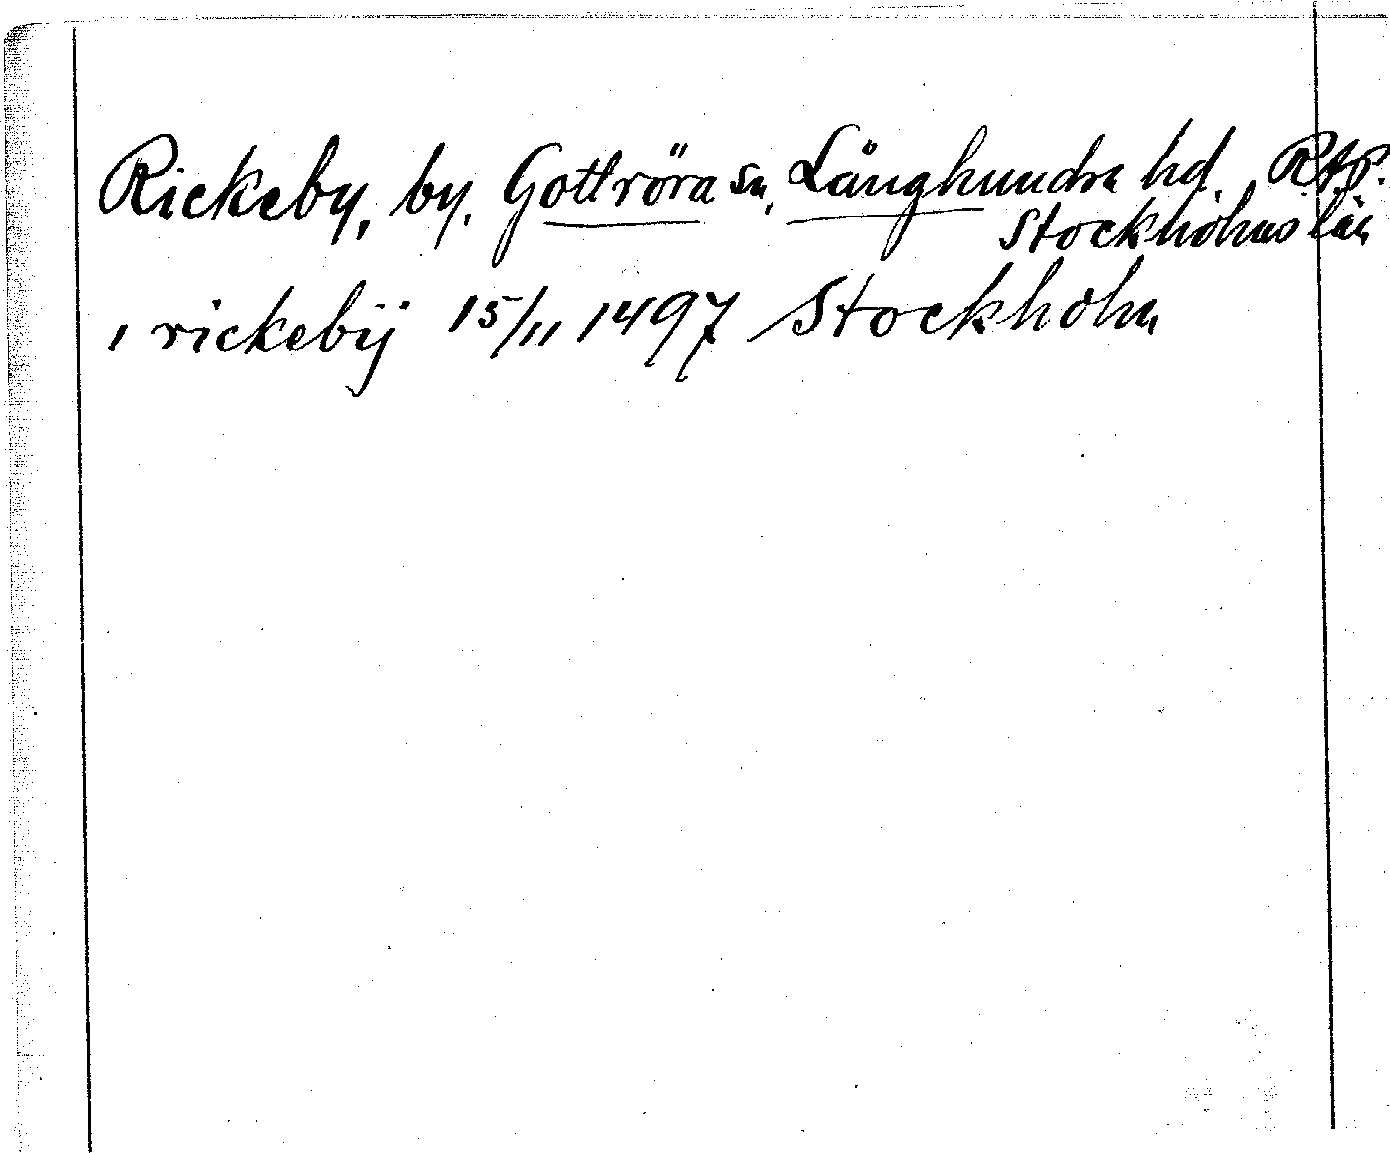 Rickeby, by. Gottröra sn, Långhundra hd. RAP.
Stockholms län
i rickebÿ 15/11 1497 Stockholm